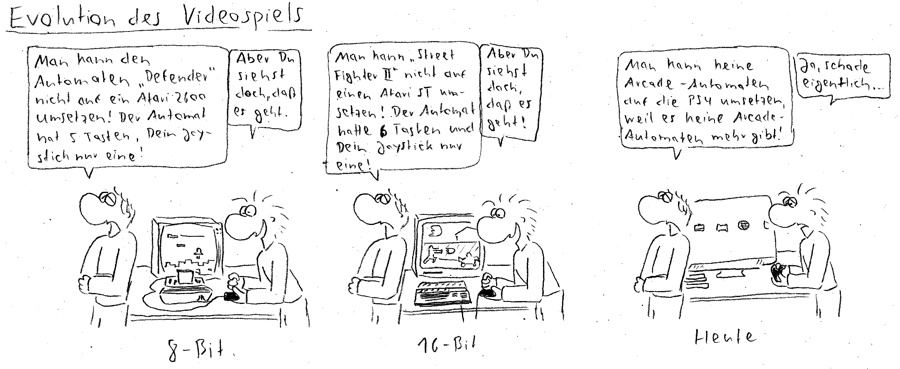 Evolution des Videospiels
Man kann den
Automaten „Defender"
nicht auf ein Atari 2600
umsetzen! Der Automat
hat 5 Tasten, Dein Joy-
stick nur eine!
Aber Du
siehst
doch, daß
es geht.
8-Bit.
Man kann „Street
Fighter II" nicht auf
einen Atari ST um-
setzen! Der Automat
hatte 6 Tasten und
Dein Joystick nur
eine!
Aber Du
siehst
doch,
daß es
geht!
16-Bit
Man kann keine
Arcade-Automaten
auf die PS4 umsetzen,
weil es keine Arcade-
Automaten mehr gibt!
Ja, schade
eigentlich...
Heute